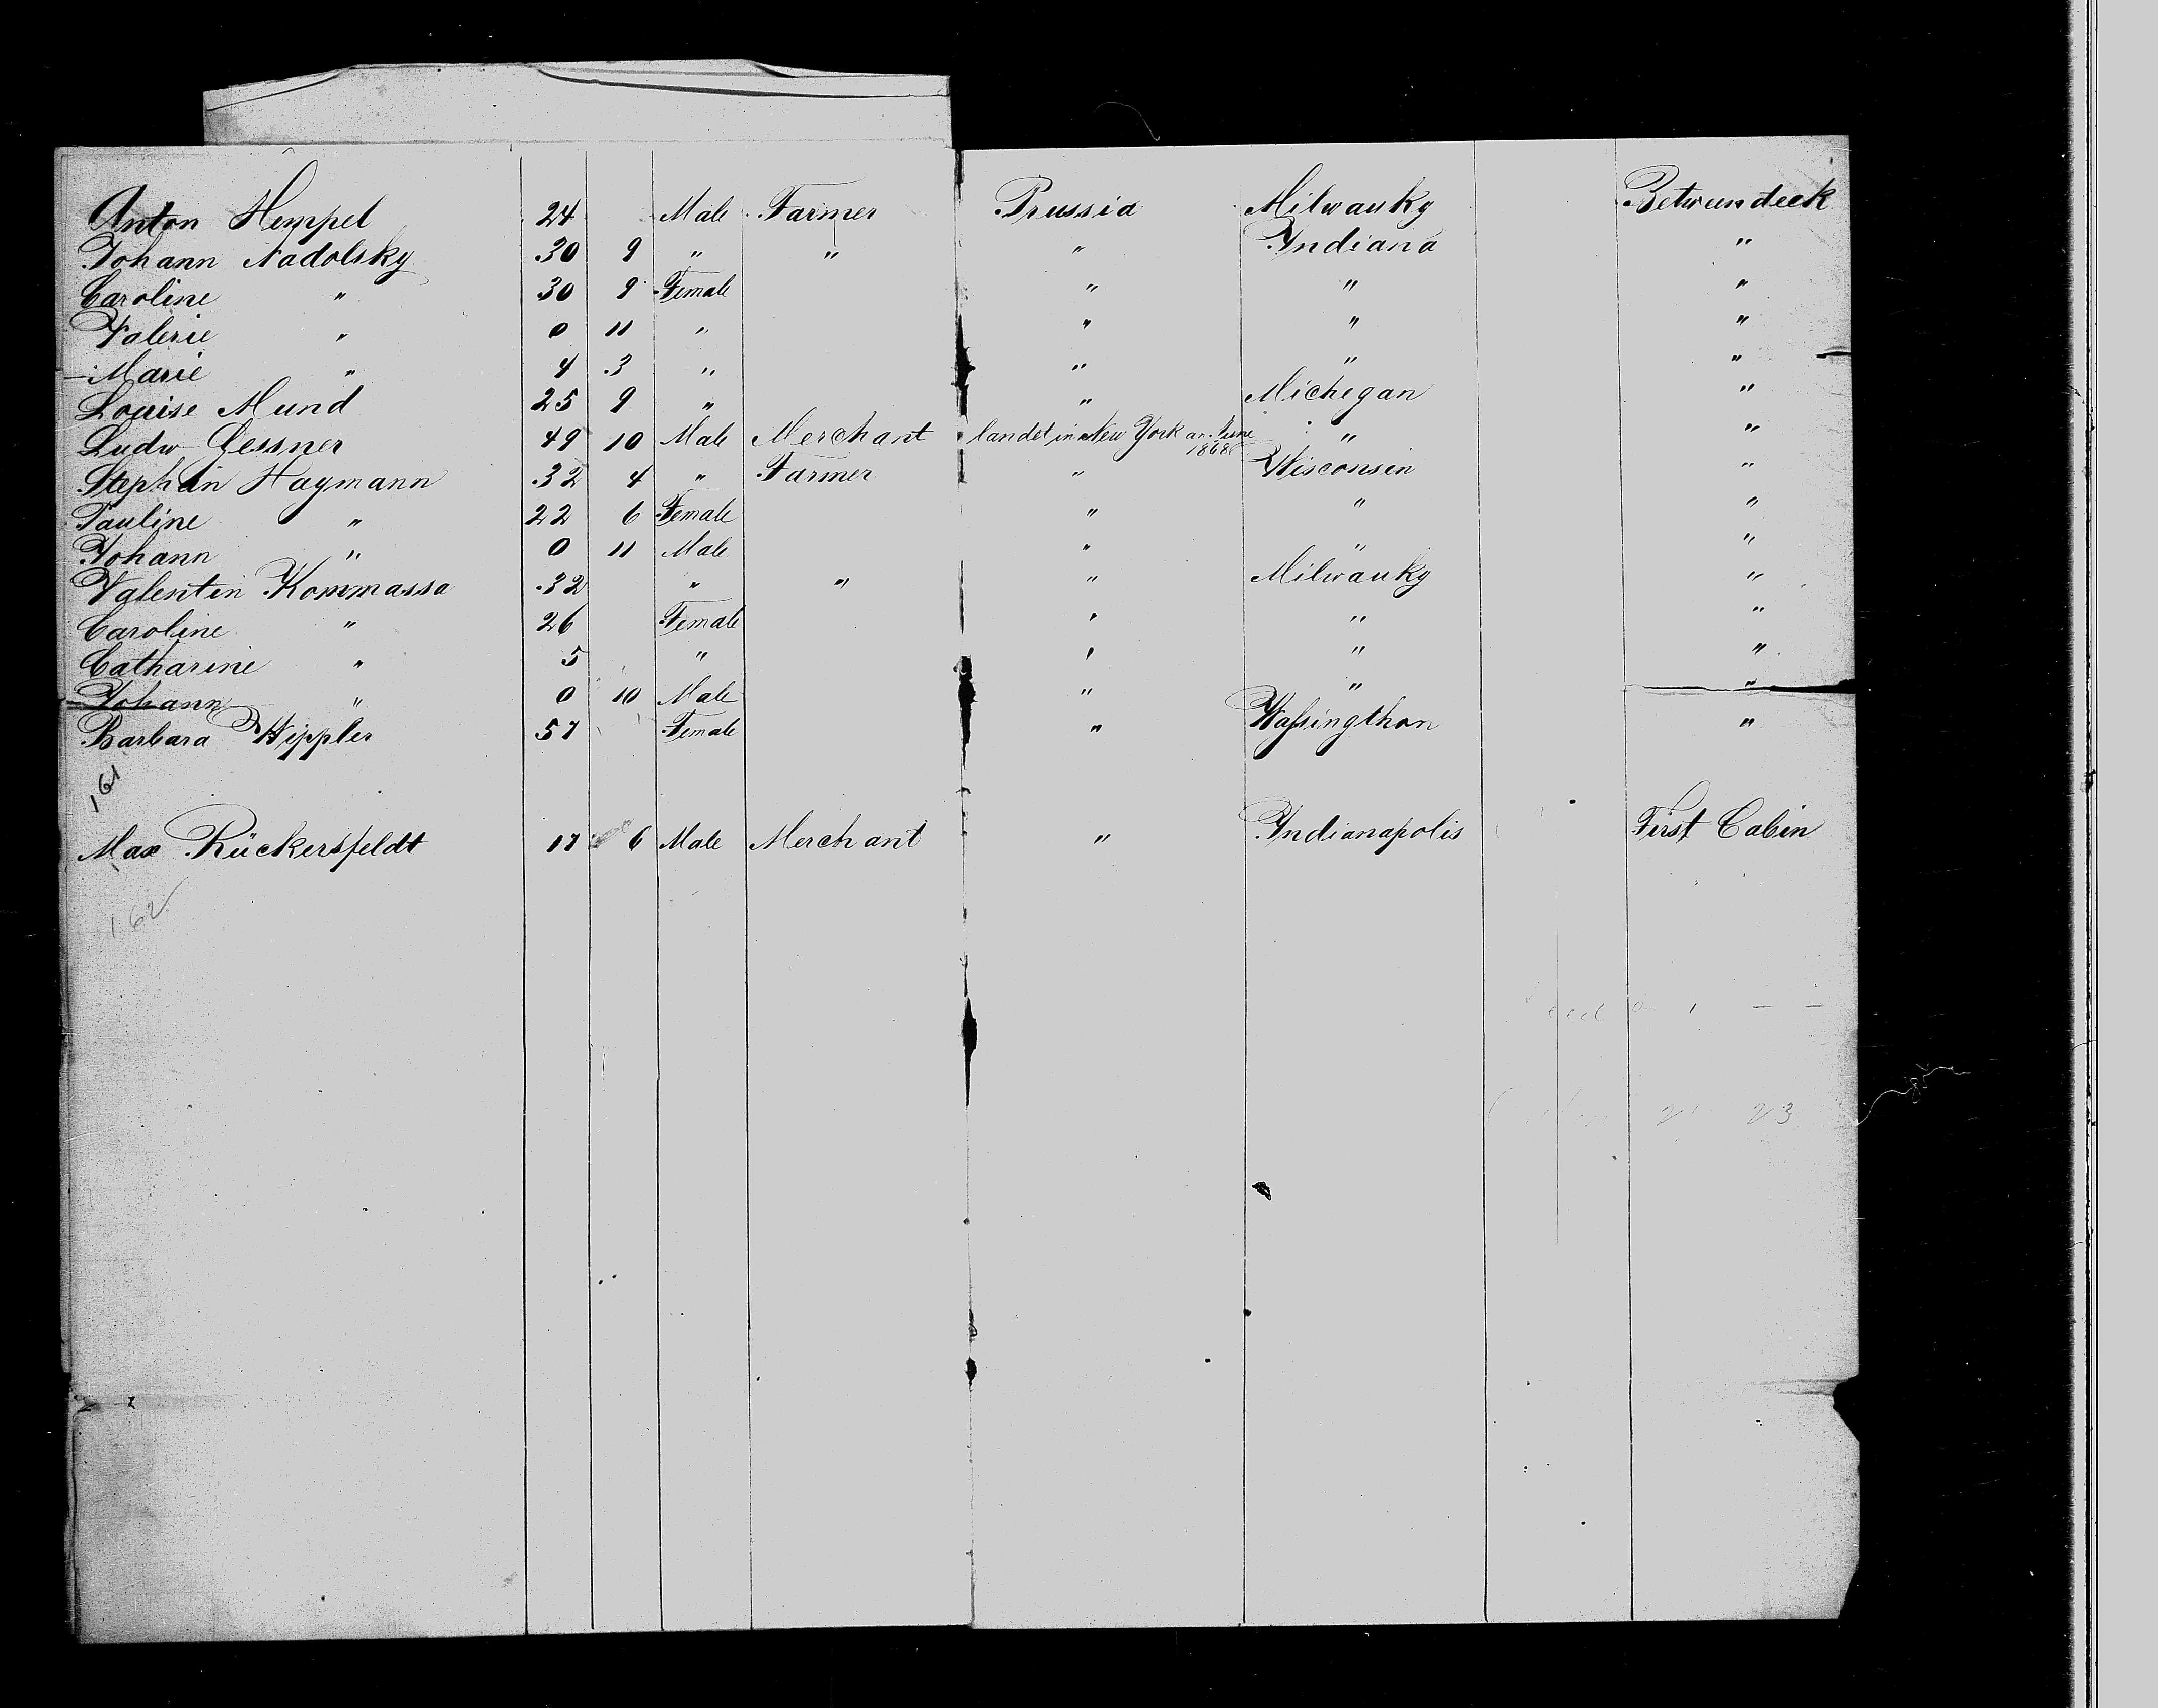 Anton Hempel 24 Male Farmer Prussia Milwauky Betwundeck
Johann Nadolsky 30 9 " " " Indiana "
Caroline " 30 9 Female " " "
Valerie " 0 11 " " " "
Marie " 4 3 " " " "
Louise Mund 25 9 " " Michegan "
Ludw Gessner 49 10 Male Merchant landet in New York an June 1868 " "
Stephan Haymann 32 4 " Farmer " Wisconsin "
Pauline " 22 6 Female " " "
Johann " 0 11 Male " " "
Valentin Kommassa 32 " " " Milwauky "
Caroline " 26 Female " " "
Catharine " 5 " " " "
Johann " 0 10 Male " " "
Barbara Wippler 57 Female " Wassingthon "
161
Max Rückersfeldt 17 6 Male Merchant " Indianapolis First Cabin
162
23